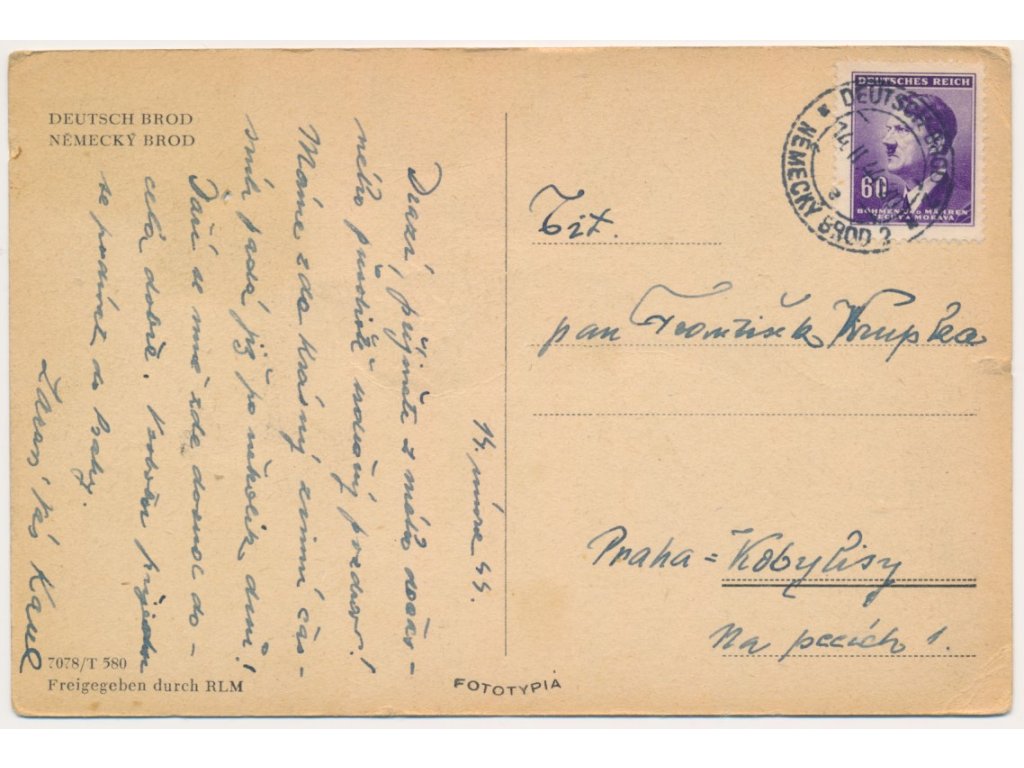 DEUTSCH BROD
NĚMECKÝ BROD
14. února 44.
Drazí, přijměte z mého dočas-
ného působiště uctivý pozdrav!
Máme zde krásný zimní čas –
sníh padá již po několik dní!
Daří se mně zde docela do-
cela dobře. V sobotu přijedu
se podívat do Prahy.
Zdraví Vás Karel
7078/T 580
Freigegeben durch RLM
FOTOTYPIA
DEUTSCHES REICH
60
BÖHMEN UND MÄHREN
ČECHY A MORAVA
DEUTSCH BROD
NĚMECKÝ BROD 2
Tit.
pan František Krupka
Praha = Kobylisy
Na pecích 1.